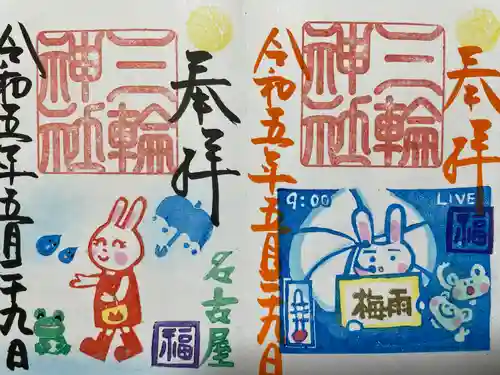 奉拝
三輪
神社
令和五年五月二十九日
名古屋
福
奉拝
三輪
神社
令和五年五月二十九日
9:00
LIVE
福
梅雨